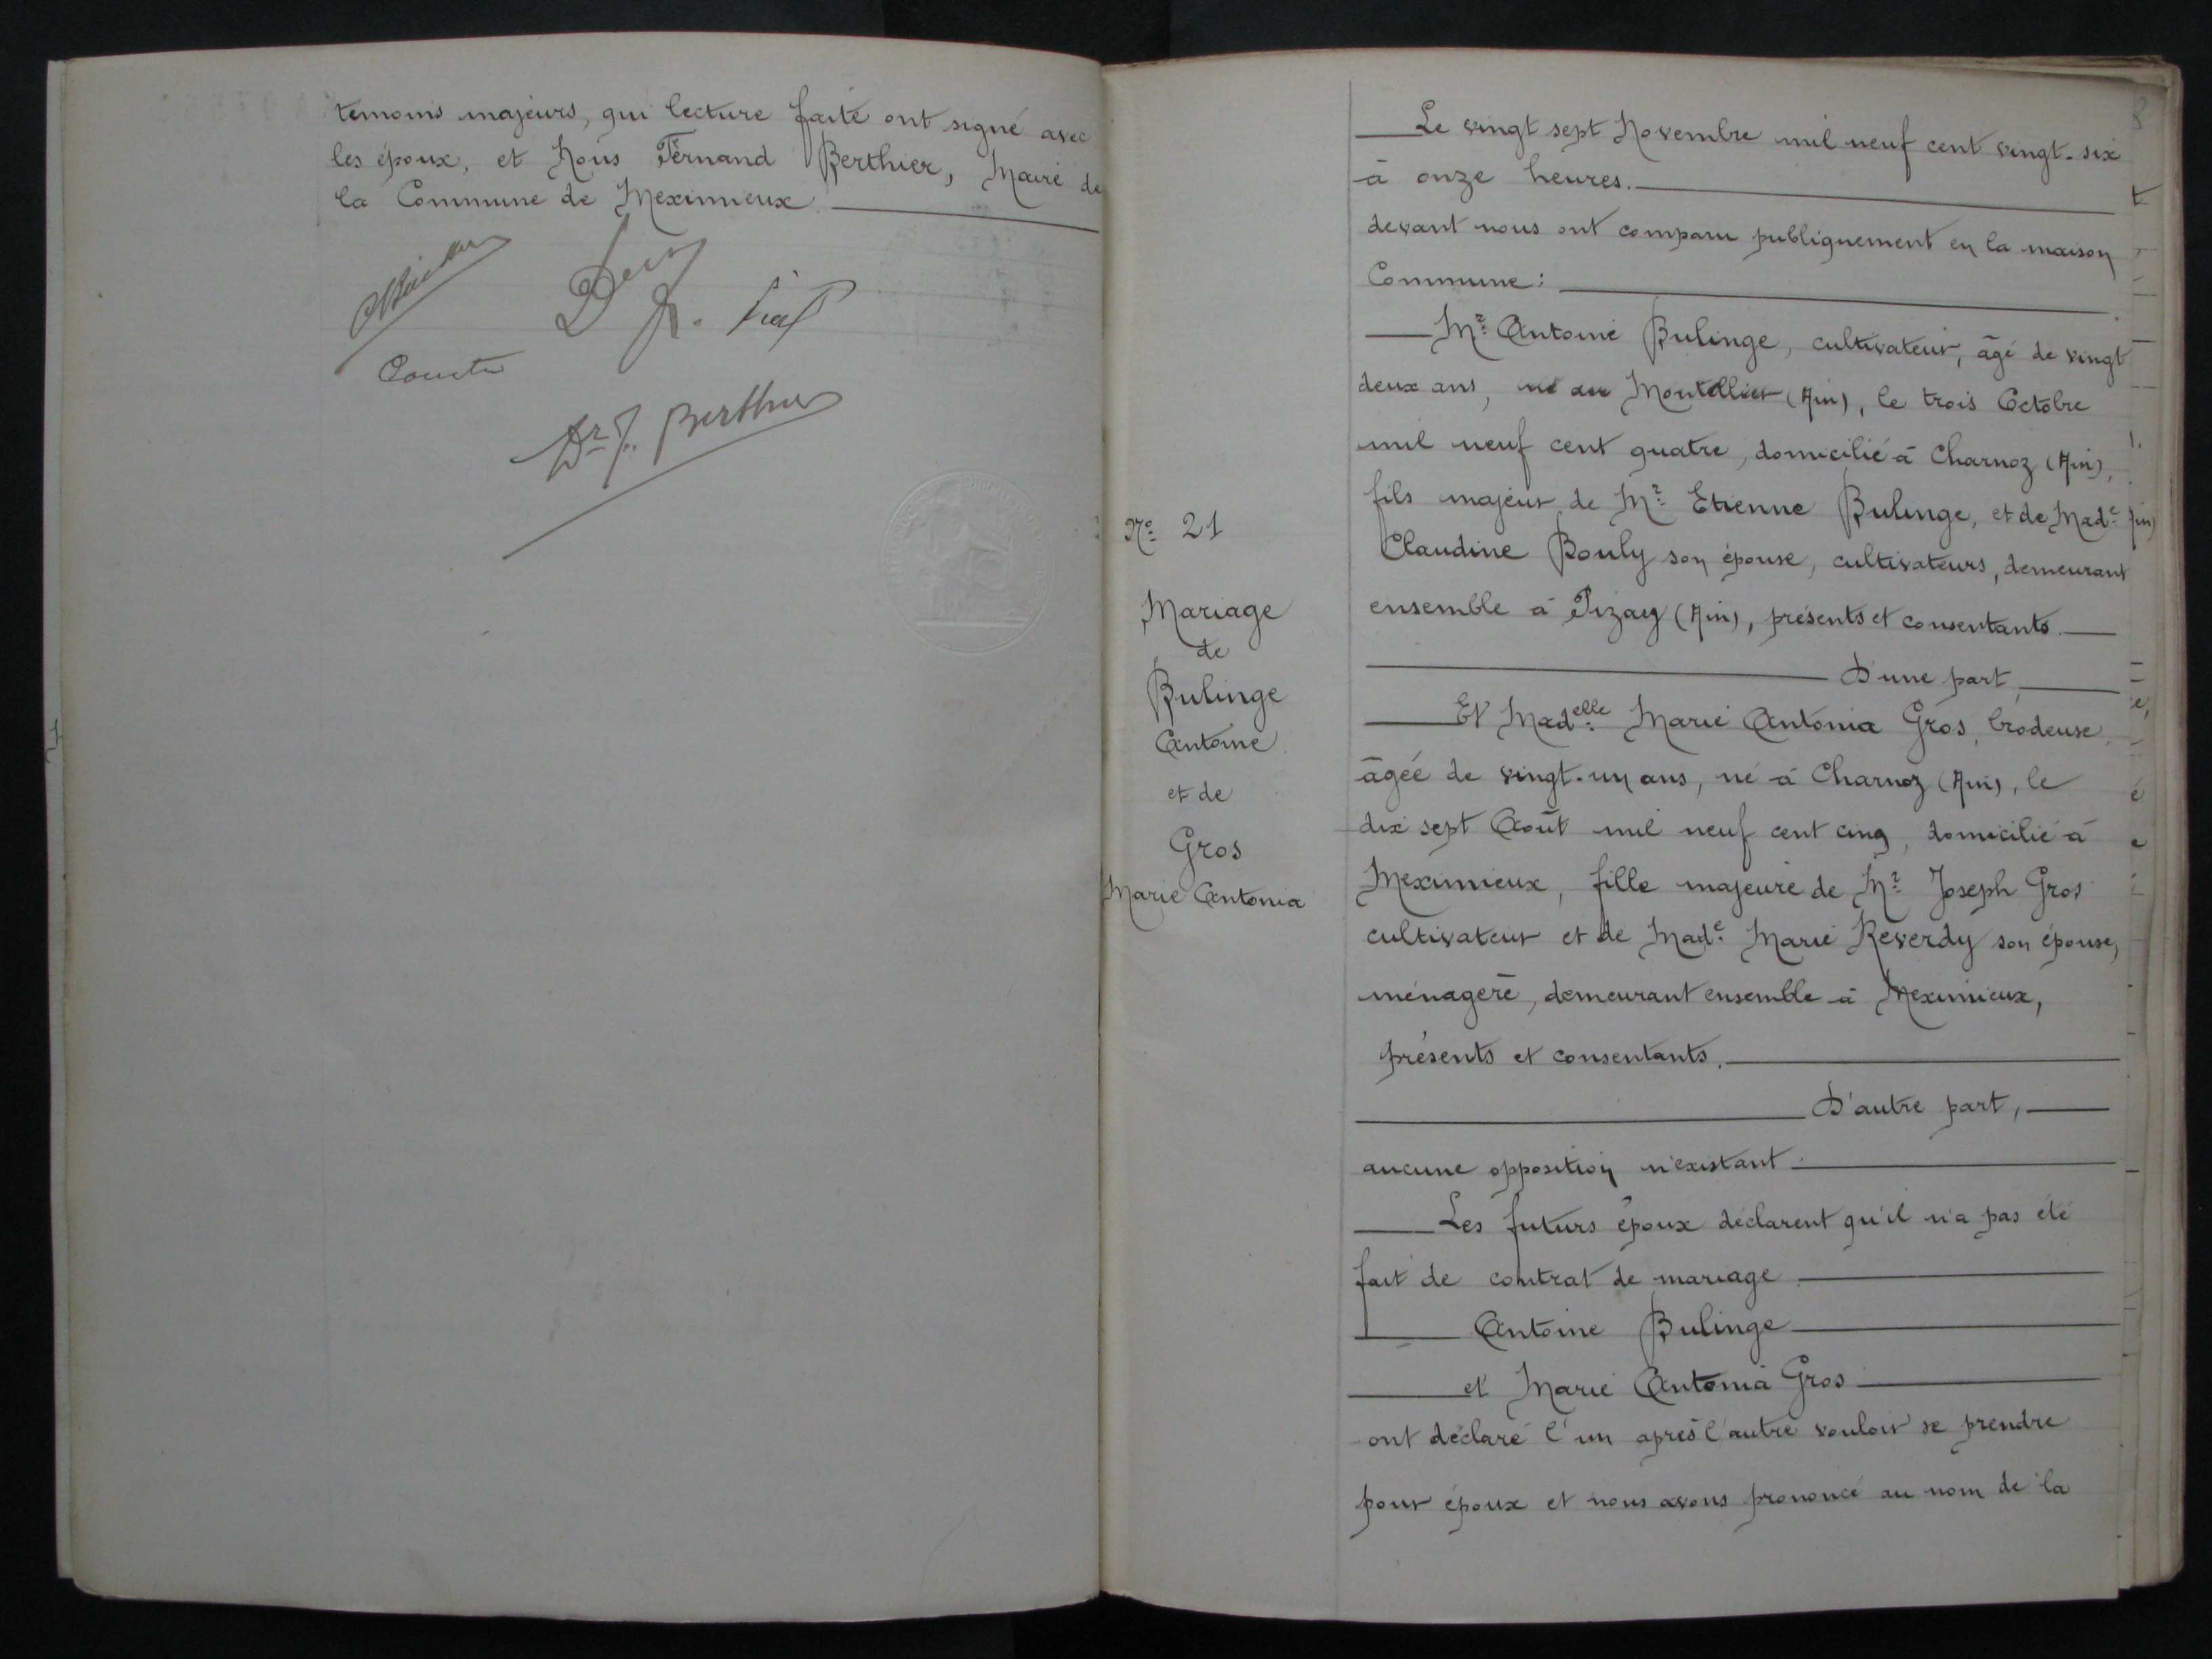 témoins majeurs, qui lecture faite ont signé avec
les époux, et Nous Fernand Berthier, Maire de
la Commune de Meximieux.
Dr. F. Berthier
8
Nº 21
Mariage
de
Bulinge
Antoine
et de
Gros
Marie Antonia
Le vingt sept Novembre mil neuf cent vingt-six
à onze heures.
devant nous ont comparu publiquement en la maison
Commune:
Mr. Antoine Bulinge, cultivateur, âgé de vingt
deux ans, né au Montellier (Ain), le trois Octobre
mil neuf cent quatre, domicilié à Charnoz (Ain),
fils majeur de Mr. Etienne Bulinge, et de Made.
Claudine Bouly son épouse, cultivateurs, demeurant
ensemble à Pizay (Ain), présents et consentants.
D'une part
Et Madelle. Marie Antonia Gros, brodeuse,
âgée de vingt-un ans, né à Charnoz (Ain), le
dix sept Août mil neuf cent cinq, domicilié à
Meximieux, fille majeure de Mr. Joseph Gros
cultivateur et de Made. Marie Reverdy son épouse,
ménagère, demeurant ensemble à Meximieux,
présents et consentants.
D'autre part,
aucune opposition n'existant.
Les futurs époux déclarent qu'il n'a pas été
fait de contrat de mariage.
Antoine Bulinge
et Marie Antonia Gros
ont déclaré l'un après l'autre vouloir se prendre
pour époux et nous avons prononcé au nom de la